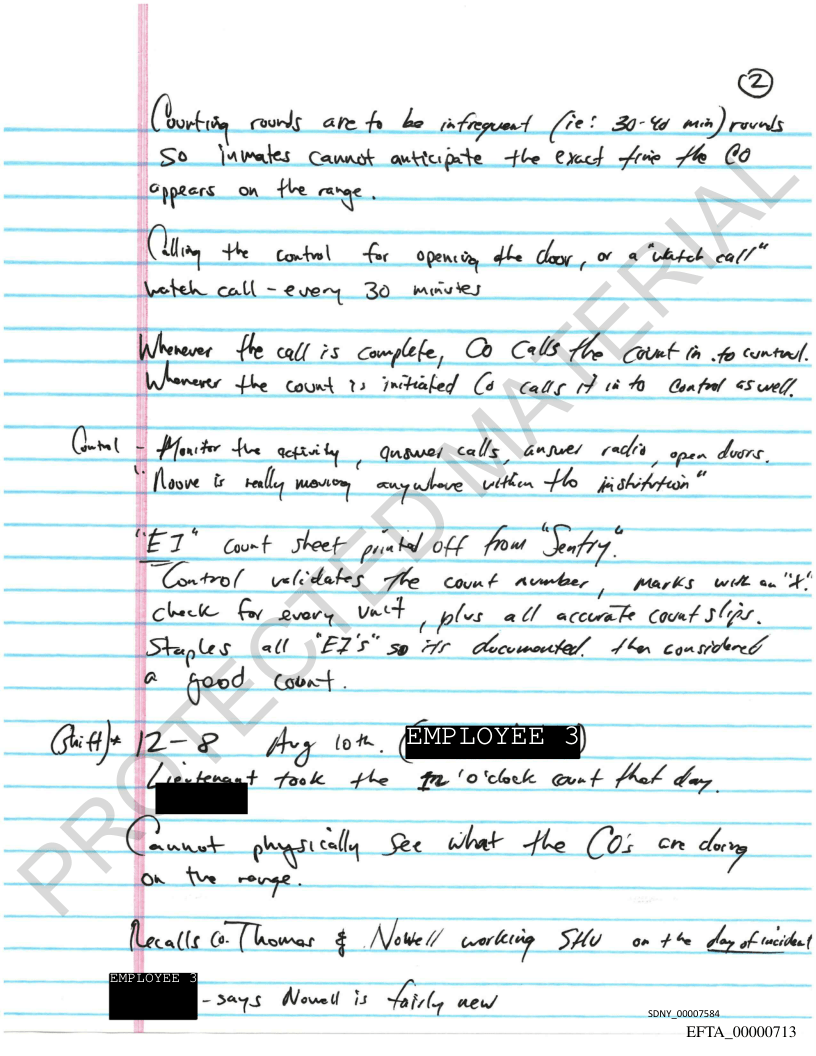 ②
Counting rounds are to be infrequent (ie: 30-40 min) rounds
so inmates cannot anticipate the exact time the CO
appears on the range.
Calling the control for opening the door, or a "watch call"
watch call - every 30 minutes
Whenever the call is complete, CO calls the count in .to control.
Whenever the count is initiated Co calls it in to Control as well.
Control - Monitor the activity, answer calls, answer radio, open doors.
"Noone is really moving anywhere within the institution"
"EI" count sheet printed off from "Sentry".
Control validates the count number, marks with an "X".
check for every unit, plus all accurate count slips.
Staples all "EI's" so its documented. then considered
a good count.
(Shift)* 12-8 Aug 10th. (EMPLOYEE 3)
Lieutenant took the o'clock count that day.
Cannot physically see what the CO's are doing
on the range.
Recalls Co. Thomas & Nowell working SHU on the day of incident
EMPLOYEE 3
- says Nowell is fairly new
SDNY_00007584
EFTA_00000713
PROTECTED MATERIAL